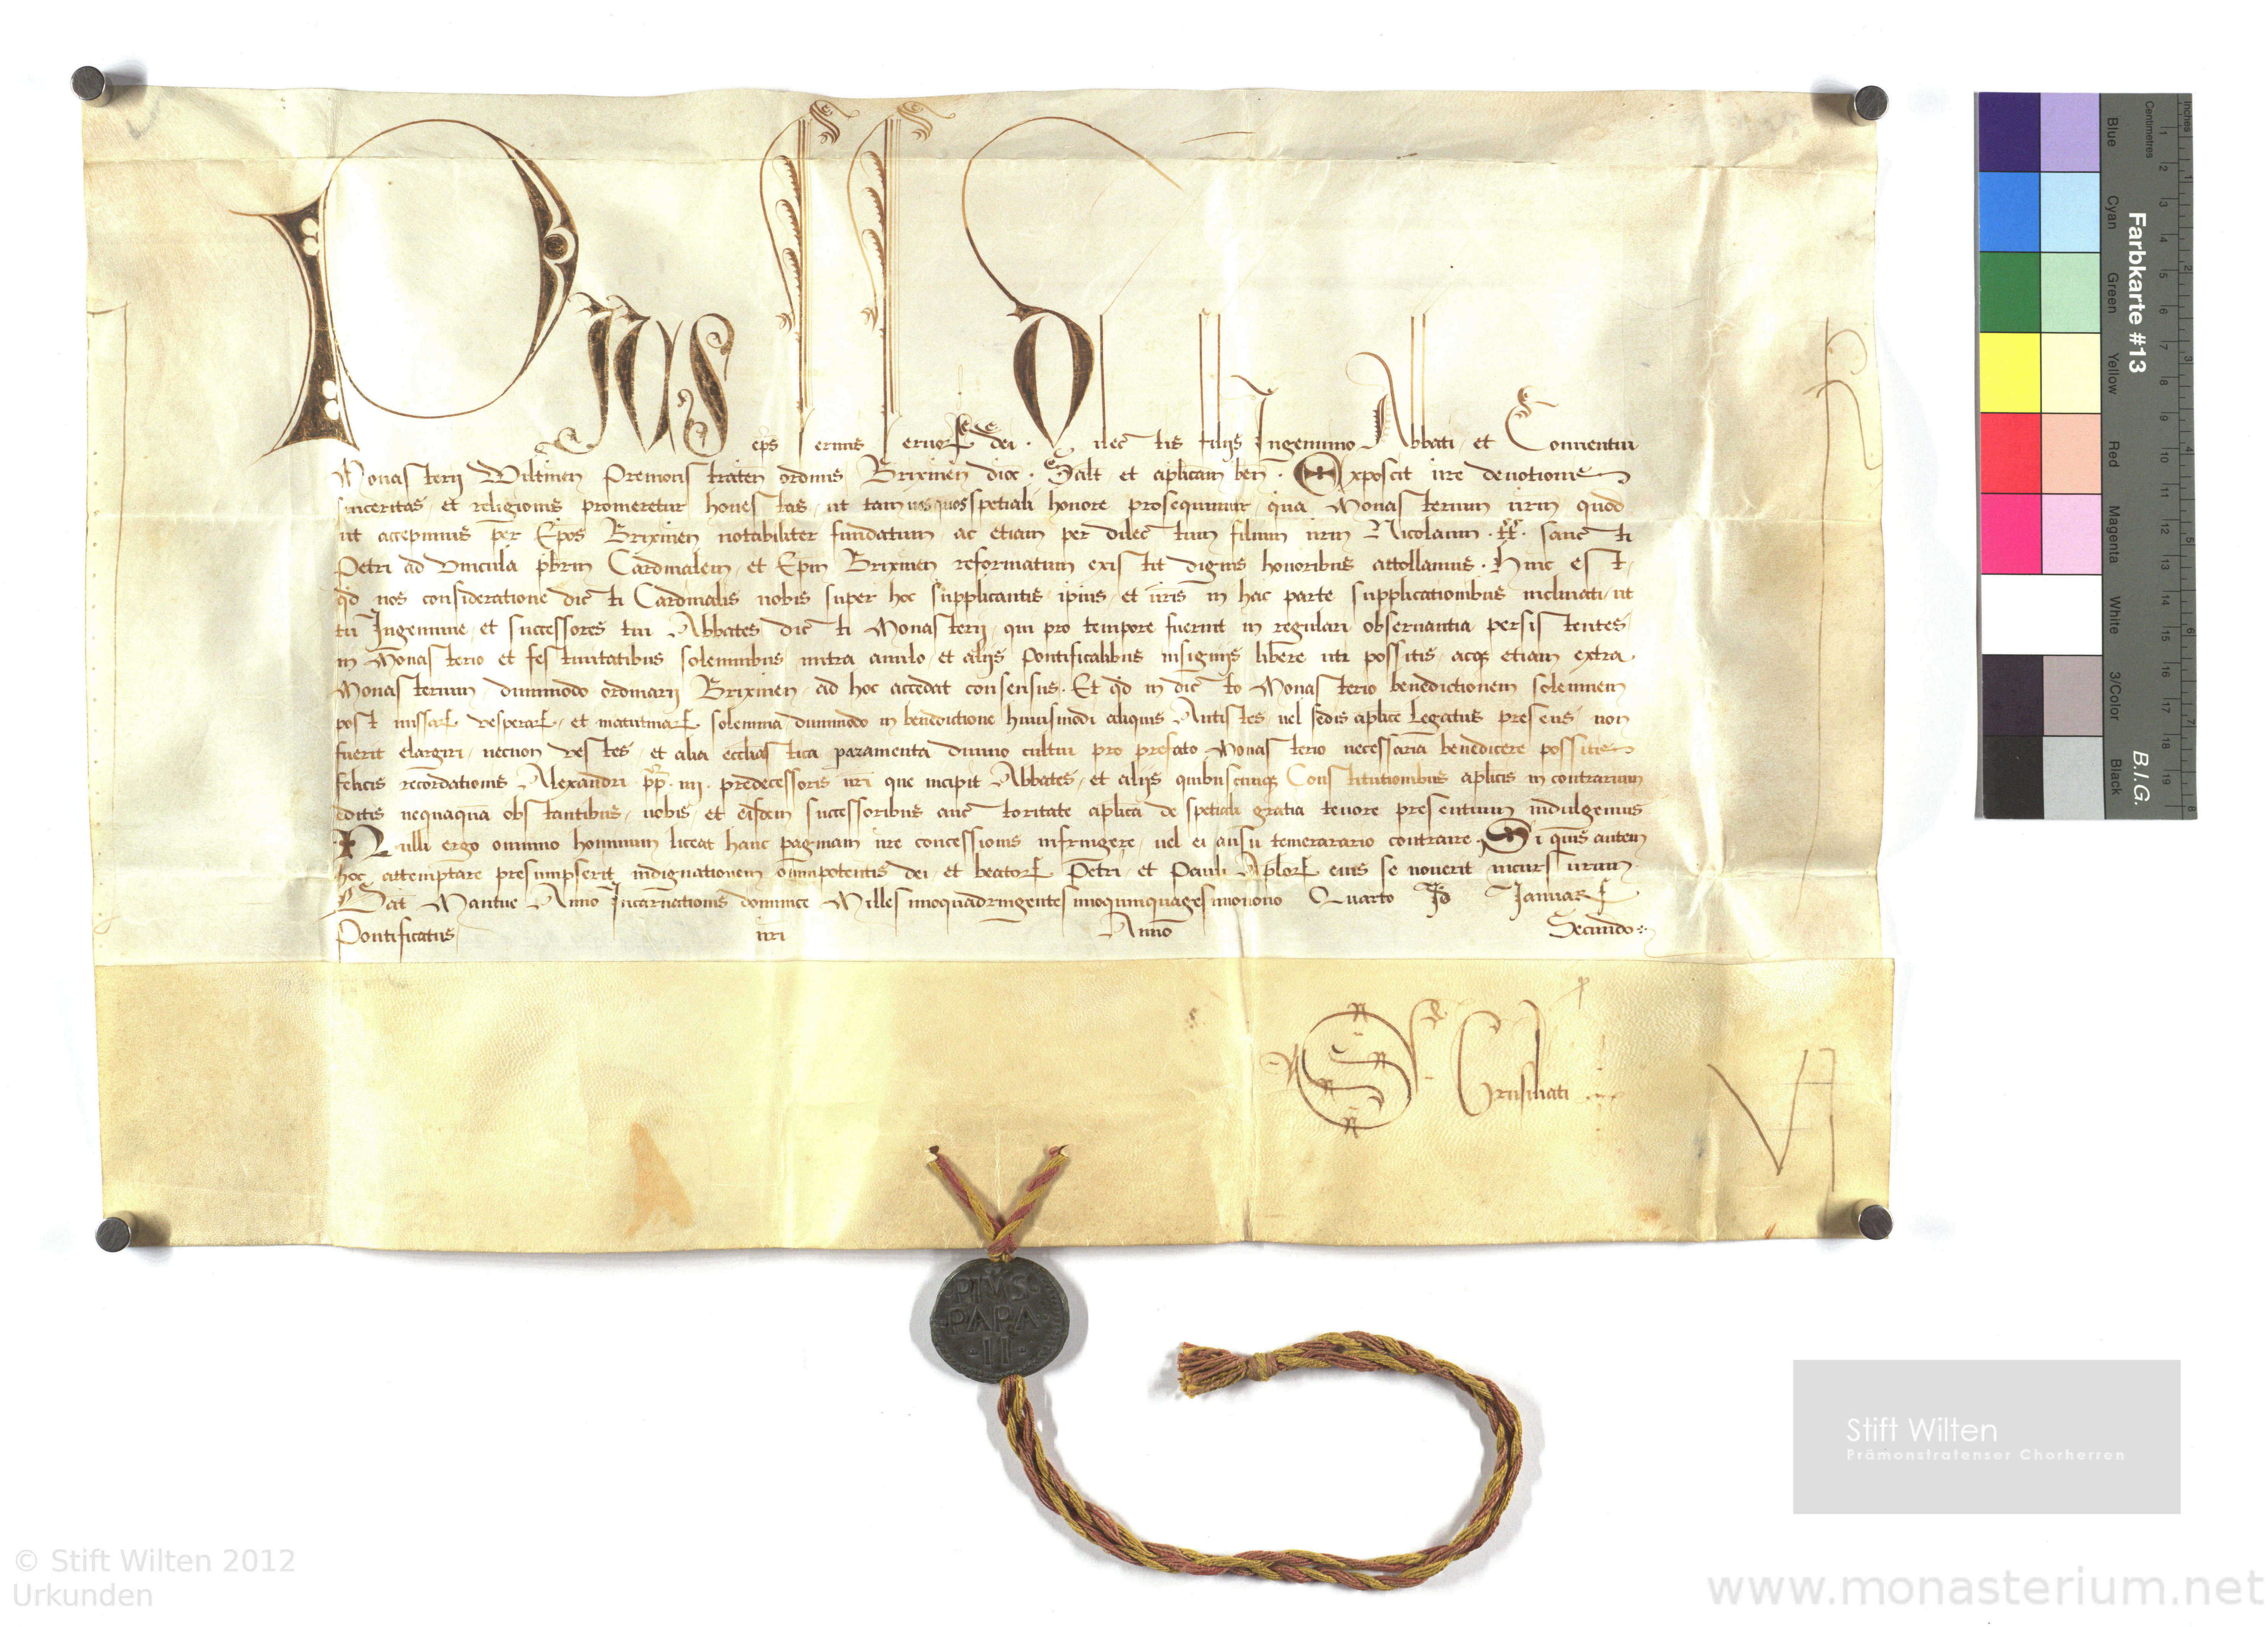 Pius eps servus servorum dei. Dilectis filiis Ingenuino Abbati et Conventui
Monasterii Wiltinen Premonstraten ordinis Brixinen dioc. Salt et aplicam ben. Exposcit vre devotionis
sinceritas et religionis promeretur honestas ut tam vos quos spetiali honore prosequimur qua Monasterium vrm quod
ut accepimus per Epos Brixinen notabiliter fundatum ac etiam per dilectum filium nrm Nicolaum tt. sancti
Petri ad Vincula pbrm Cardinalem et Epm Brixinen reformatum existit dignis honoribus attollamus. Hinc est
qd nos consideratione dicti Cardinalis nobis super hoc supplicantis ipius et vris in hac parte supplicationibus inclinati ut
tu Ingenuine et successores tui Abbates dicti Monasterii qui pro tempore fuerint in regulari observantia persistentes
in Monasterio et festivitatibus solennibus mitra anulo et aliis Pontificalibus insigniis libere uti possitis acque etiam extra
Monasterium dummodo ordinarii Brixinen ad hoc accedat consensus. Et qd in dicto Monasterio benedictionem solennem
post missarum vesperarum et matutinarum solennia dummodo in benedictione huiusmodi aliquis Antistes vel sedis aplice Legatus presens non
fuerit elargiri necnon vestes et alia ecclesiastica paramenta divino cultui pro prefato Monasterio necessaria benedicere possitis
felicis recordationis Alexandri pp. iiii. predecessoris nri que incipit Abbates et aliis quibuscunque Constitutionibus aplicis in contrarium
editis nequaqua obstantibus vobis et eisdem successoribus auctoritate aplica de spetiali gratia tenore presentium indulgemus
Nulli ergo omnino hominum liceat hanc paginam nre concessionis infringere vel ei ausu temerarario contraire. Si quis autem
hoc attemptare presumpserit indignationem omnipotentis dei et beatorum Petri et Pauli Aplorum eius se noverit incursurum
Dat Mantue Anno Incarnationis dominice Millesimoquadringentesimoquinquagesimonono Quarto Id Januar
Pontificatus nri Anno Secundo
PIVS
PAPA
II
Farbkarte #13
B.I.G.
Centimetres
Inches
Blue Cyan Green Yellow Red Magenta White 3/Color Black
Stift Wilten
Prämonstratenser Chorherren
© Stift Wilten 2012
Urkunden
www.monasterium.net